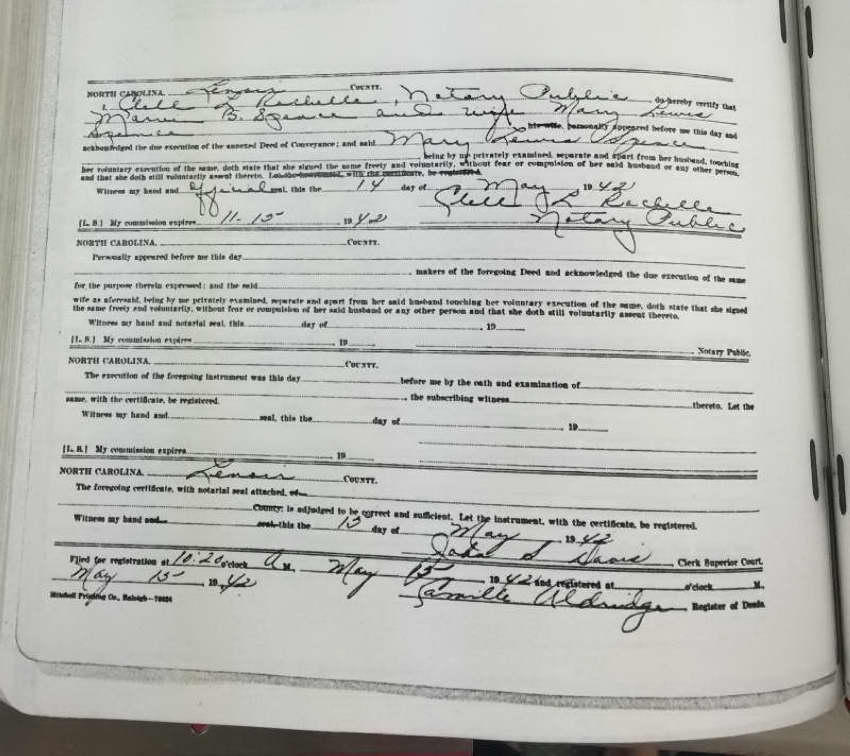 NORTH CAROLINA. Lenoir COUNTY.
I, Clell L Rachelle, Notary Public do hereby certify that
B. Spence and wife Mary Lewis
Spence his wife, personally appeared before me this day and
acknowledged the due execution of the annexed Deed of Conveyance; and said Mary Lewis Spence
being by me privately examined, separate and apart from her husband, touching
her voluntary execution of the same, doth state that she signed the same freely and voluntarily, without fear or compulsion of her said husband or any other person,
and that she doth still voluntarily assent thereto. Let the instrument, with the certificate, be registered.
Witness my hand and official seal, this the 14 day of May 1942
Clell L Rachelle
[L. S.] My commission expires 11-15 1942 Notary Public
NORTH CAROLINA. COUNTY.
Personally appeared before me this day
, makers of the foregoing Deed and acknowledged the due execution of the same
for the purpose therein expressed; and the said
wife as aforesaid, being by me privately examined, separate and apart from her said husband touching her voluntary execution of the same, doth state that she signed
the same freely and voluntarily, without fear or compulsion of her said husband or any other person and that she doth still voluntarily assent thereto.
Witness my hand and notarial seal, this day of , 19
[L. S.] My commission expires 19 Notary Public.
NORTH CAROLINA. COUNTY.
The execution of the foregoing instrument was this day before me by the oath and examination of
, the subscribing witness thereto. Let the
same, with the certificate, be registered.
Witness my hand and seal, this the day of , 19
[L. S.] My commission expires 19
NORTH CAROLINA. Lenoir COUNTY.
The foregoing certificate, with notarial seal attached, of
County; is adjudged to be correct and sufficient. Let the instrument, with the certificate, be registered.
Witness my hand and seal this the 15 day of May 1942
John S Davis Clerk Superior Court.
Filed for registration at 10:20 o'clock A M. May 15 1942 and registered at o'clock M.
May 15 1942 Camille Aldridge Register of Deeds.
Mitchell Printing Co., Raleigh